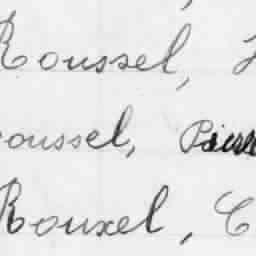 Roussel,
oussel, Pierre
Rouxel, C